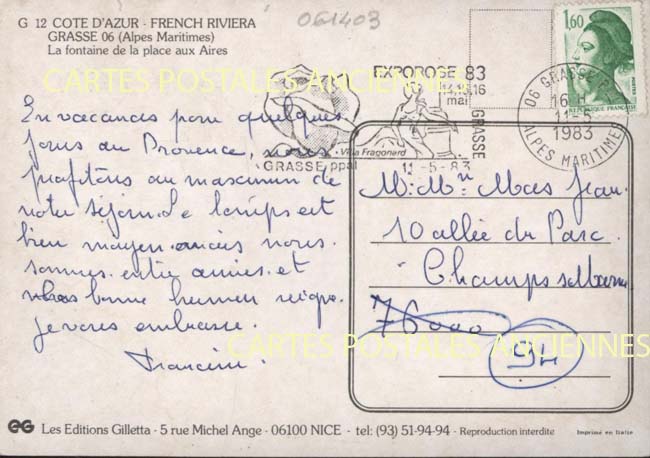 G 12 COTE D'AZUR - FRENCH RIVIERA
GRASSE 06 (Alpes Maritimes)
La fontaine de la place aux Aires
061403
1,60
REPUBLIQUE FRANÇAISE
CARTES POSTALES ANCIENNES
EXPOROSE 83
13.15.16
mai
GRASSE
Villa Fragonard
GRASSE ppal
11-5-83
06 GRASSE
16 H
11-5
1983
ALPES MARITIMES
En vacances pour quelques
jours au Provence, nous
profitons au maximum de
notre séjour. Le temps est
bien moyen. ancies nous
sommes entre amies et
bonne humeur
je vous embrasse.
Francine
M. Mme Mas Jean
10 allée du Parc
Champs s/Marne
76000
94
CARTES POSTALES ANCIENNES
Les Editions Gilletta - 5 rue Michel Ange - 06100 NICE - tel: (93) 51-94-94 - Reproduction interdite
Imprimé en Italie